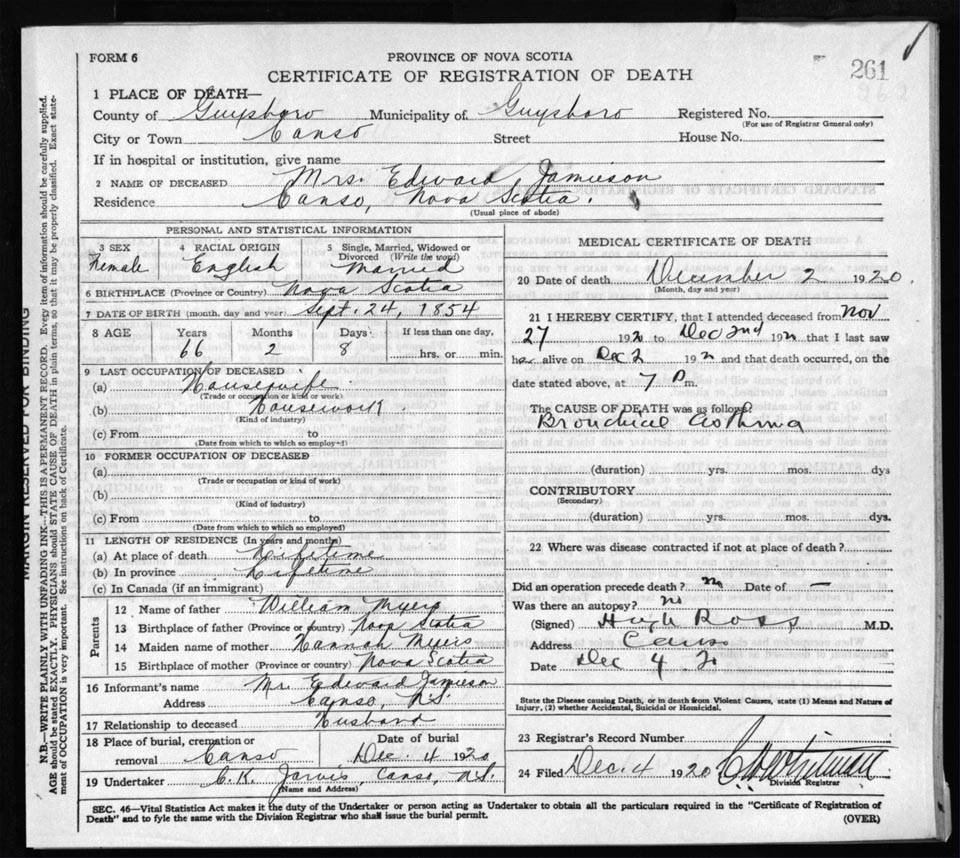 FORM 6
PROVINCE OF NOVA SCOTIA
CERTIFICATE OF REGISTRATION OF DEATH
261
1 PLACE OF DEATH—
County of Guysboro Municipality of Guysboro Registered No.
(For use of Registrar General only)
City or Town Canso Street House No.
If in hospital or institution, give name
2 NAME OF DECEASED Mrs. Edward Jamieson
Residence Canso, Nova Scotia.
(Usual place of abode)
PERSONAL AND STATISTICAL INFORMATION
3 SEX 4 RACIAL ORIGIN 5 Single, Married, Widowed or Divorced (Write the word)
Female English Married
6 BIRTHPLACE (Province or Country) Nova Scotia
7 DATE OF BIRTH (month, day and year) Sept. 24, 1854
8 AGE Years Months Days If less than one day,
66 2 8 hrs. or min.
9 LAST OCCUPATION OF DECEASED
(a) Housewife
(Trade or occupation or kind or work)
(b) Housework
(Kind of industry)
(c) From to
(Date from which to which so employed)
10 FORMER OCCUPATION OF DECEASED
(a)
(Trade or occupation or kind of work)
(b)
(Kind of industry)
(c) From to
(Date from which to which so employed)
11 LENGTH OF RESIDENCE (In years and months)
(a) At place of death Lifetime
(b) In province Lifetime
(c) In Canada (if an immigrant)
Parents
12 Name of father William Myers
13 Birthplace of father (Province or country) Nova Scotia
14 Maiden name of mother Hannah Myers
15 Birthplace of mother (Province or country) Nova Scotia
16 Informant's name Mr. Edward Jamieson
Address Canso, N.S.
17 Relationship to deceased Husband
18 Place of burial, cremation or removal Canso Date of burial Dec 4 1920
19 Undertaker C. K. Jarvis, Canso, N.S.
(Name and Address)
MEDICAL CERTIFICATE OF DEATH
20 Date of death December 2 1920
(Month, day and year)
21 I HEREBY CERTIFY, that I attended deceased from Nov
27 1920 to Dec 2nd 1920 that I last saw
her alive on Dec 2 1920 and that death occurred, on the
date stated above, at 7 P m.
The CAUSE OF DEATH was as follows
Bronchial Asthma
(duration) yrs. mos. dys
CONTRIBUTORY
(Secondary)
(duration) yrs. mos. dys.
22 Where was disease contracted if not at place of death?
Did an operation precede death? no Date of —
Was there an autopsy? no
(Signed) Hugh Ross M.D.
Address Canso
Date Dec 4 20
State the Disease causing Death, or in death from Violent Causes, state (1) Means and Nature of
Injury, (2) whether Accidental, Suicidal or Homicidal.
23 Registrar's Record Number
24 Filed Dec. 4 1920 Whitman
Division Registrar
SEC. 46—Vital Statistics Act makes it the duty of the Undertaker or person acting as Undertaker to obtain all the particulars required in the "Certificate of Registration of
Death" and to fyle the same with the Division Registrar who shall issue the burial permit.
(OVER)
MARGIN RESERVED FOR BINDING
N.B.—WRITE PLAINLY WITH UNFADING INK—THIS IS A PERMANENT RECORD. Every item of information should be carefully supplied.
AGE should be stated EXACTLY. PHYSICIANS should STATE CAUSE OF DEATH in plain terms, so that it may be properly classified. Exact state-
ment of OCCUPATION is very important. See instructions on back of Certificate.